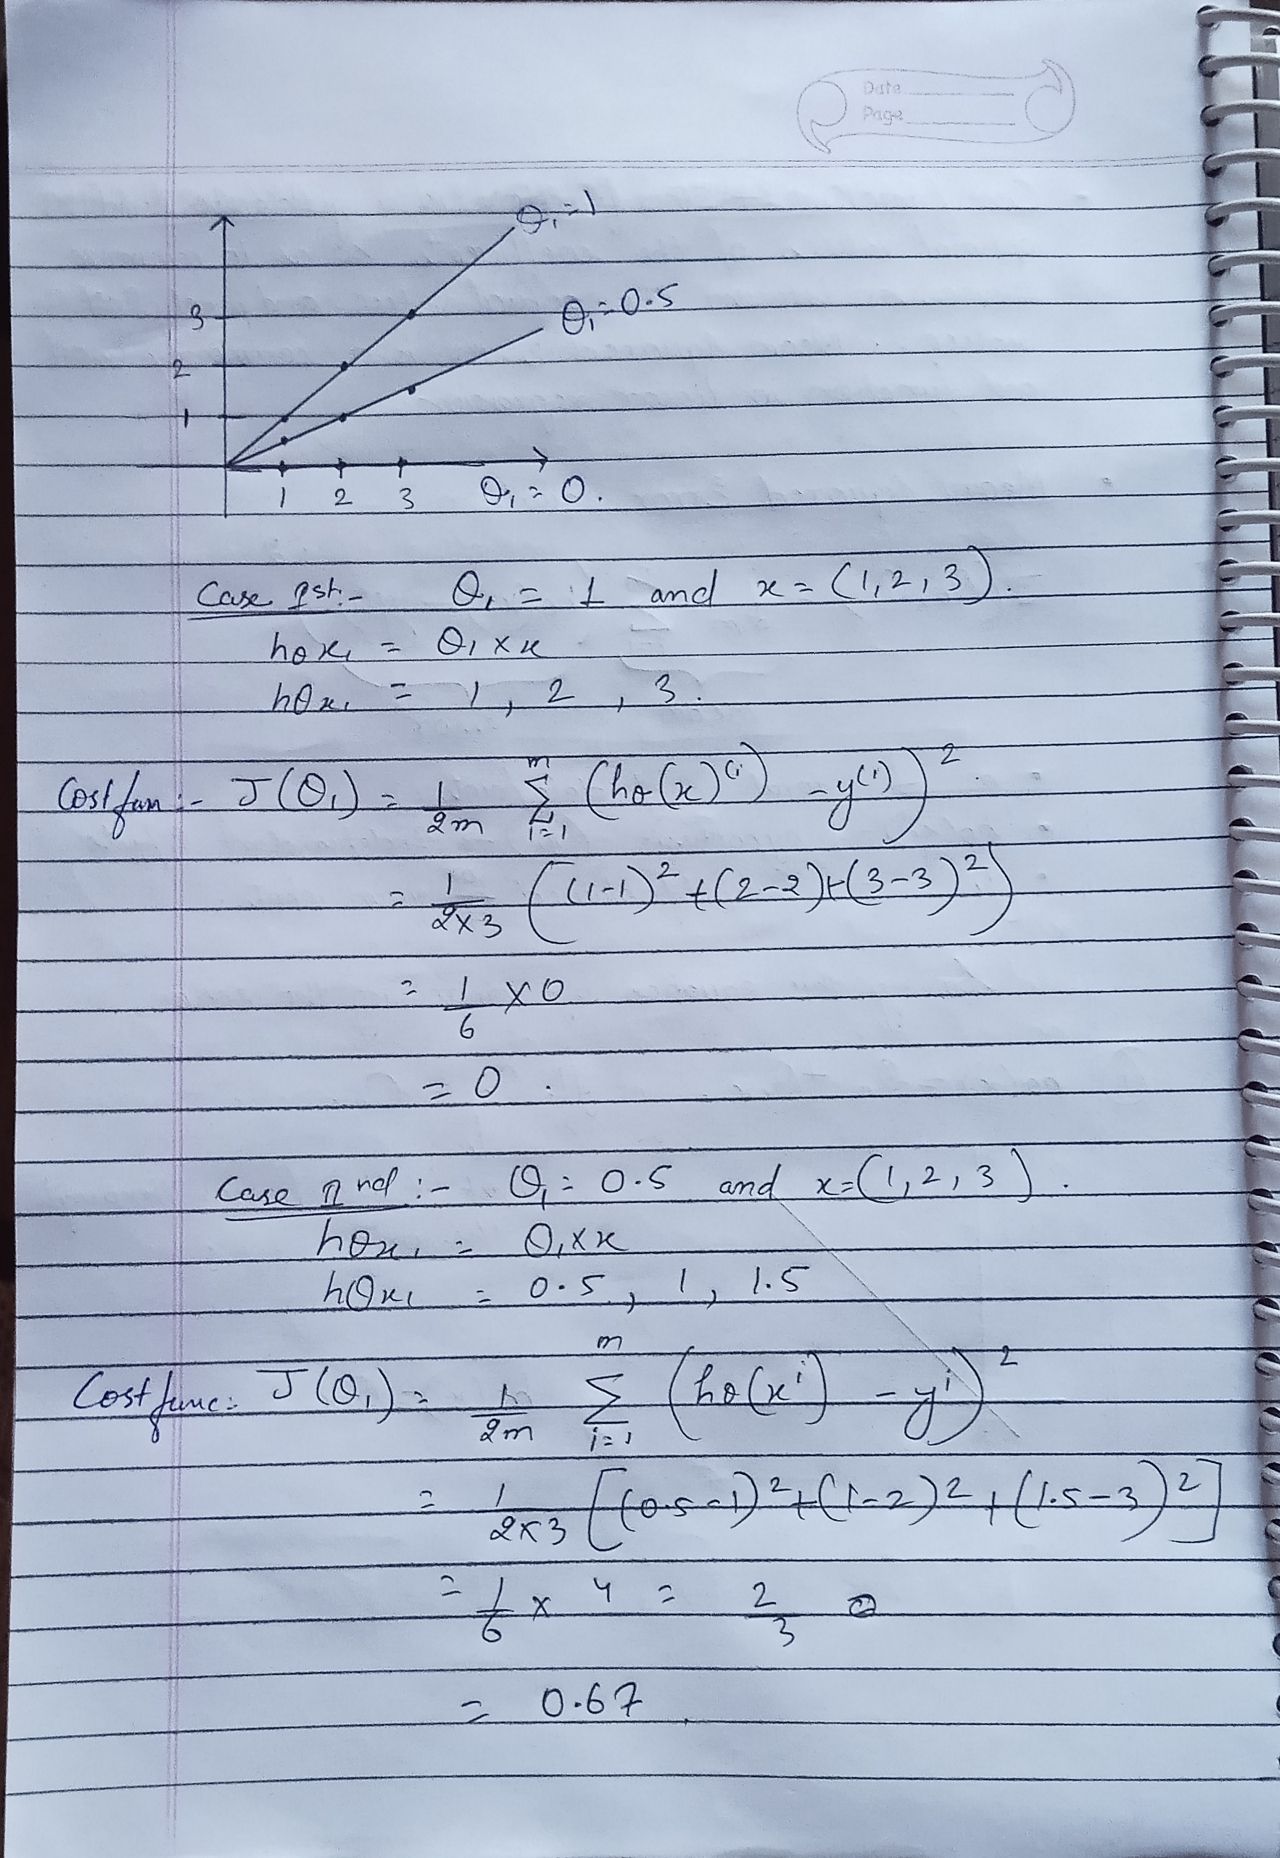 Date
Page
θ₁=1
θ₁=0.5
3
2
1
1 2 3 θ₁ = 0.
Case Ist:- θ₁ = 1 and x = (1,2,3).
hθx₁ = θ₁ × x
hθx₁ = 1, 2, 3.
Cost fun :- J(θ₁) = 1/2m Σ i=1 m (hθ(x)⁽ⁱ⁾ - y⁽ⁱ⁾)²
= 1/2×3 ((1-1)² + (2-2) + (3-3)²)
= 1/6 × 0
= 0.
Case IInd :- θ₁ = 0.5 and x=(1,2,3).
hθx₁ = θ₁×x
hθx₁ = 0.5, 1, 1.5
Cost func: J(θ₁) = 1/2m Σ i=1 m (hθ(xⁱ) - yⁱ)²
= 1/2×3 [(0.5-1)² + (1-2)² + (1.5-3)²]
= 1/6 × 4 = 2/3
= 0.67